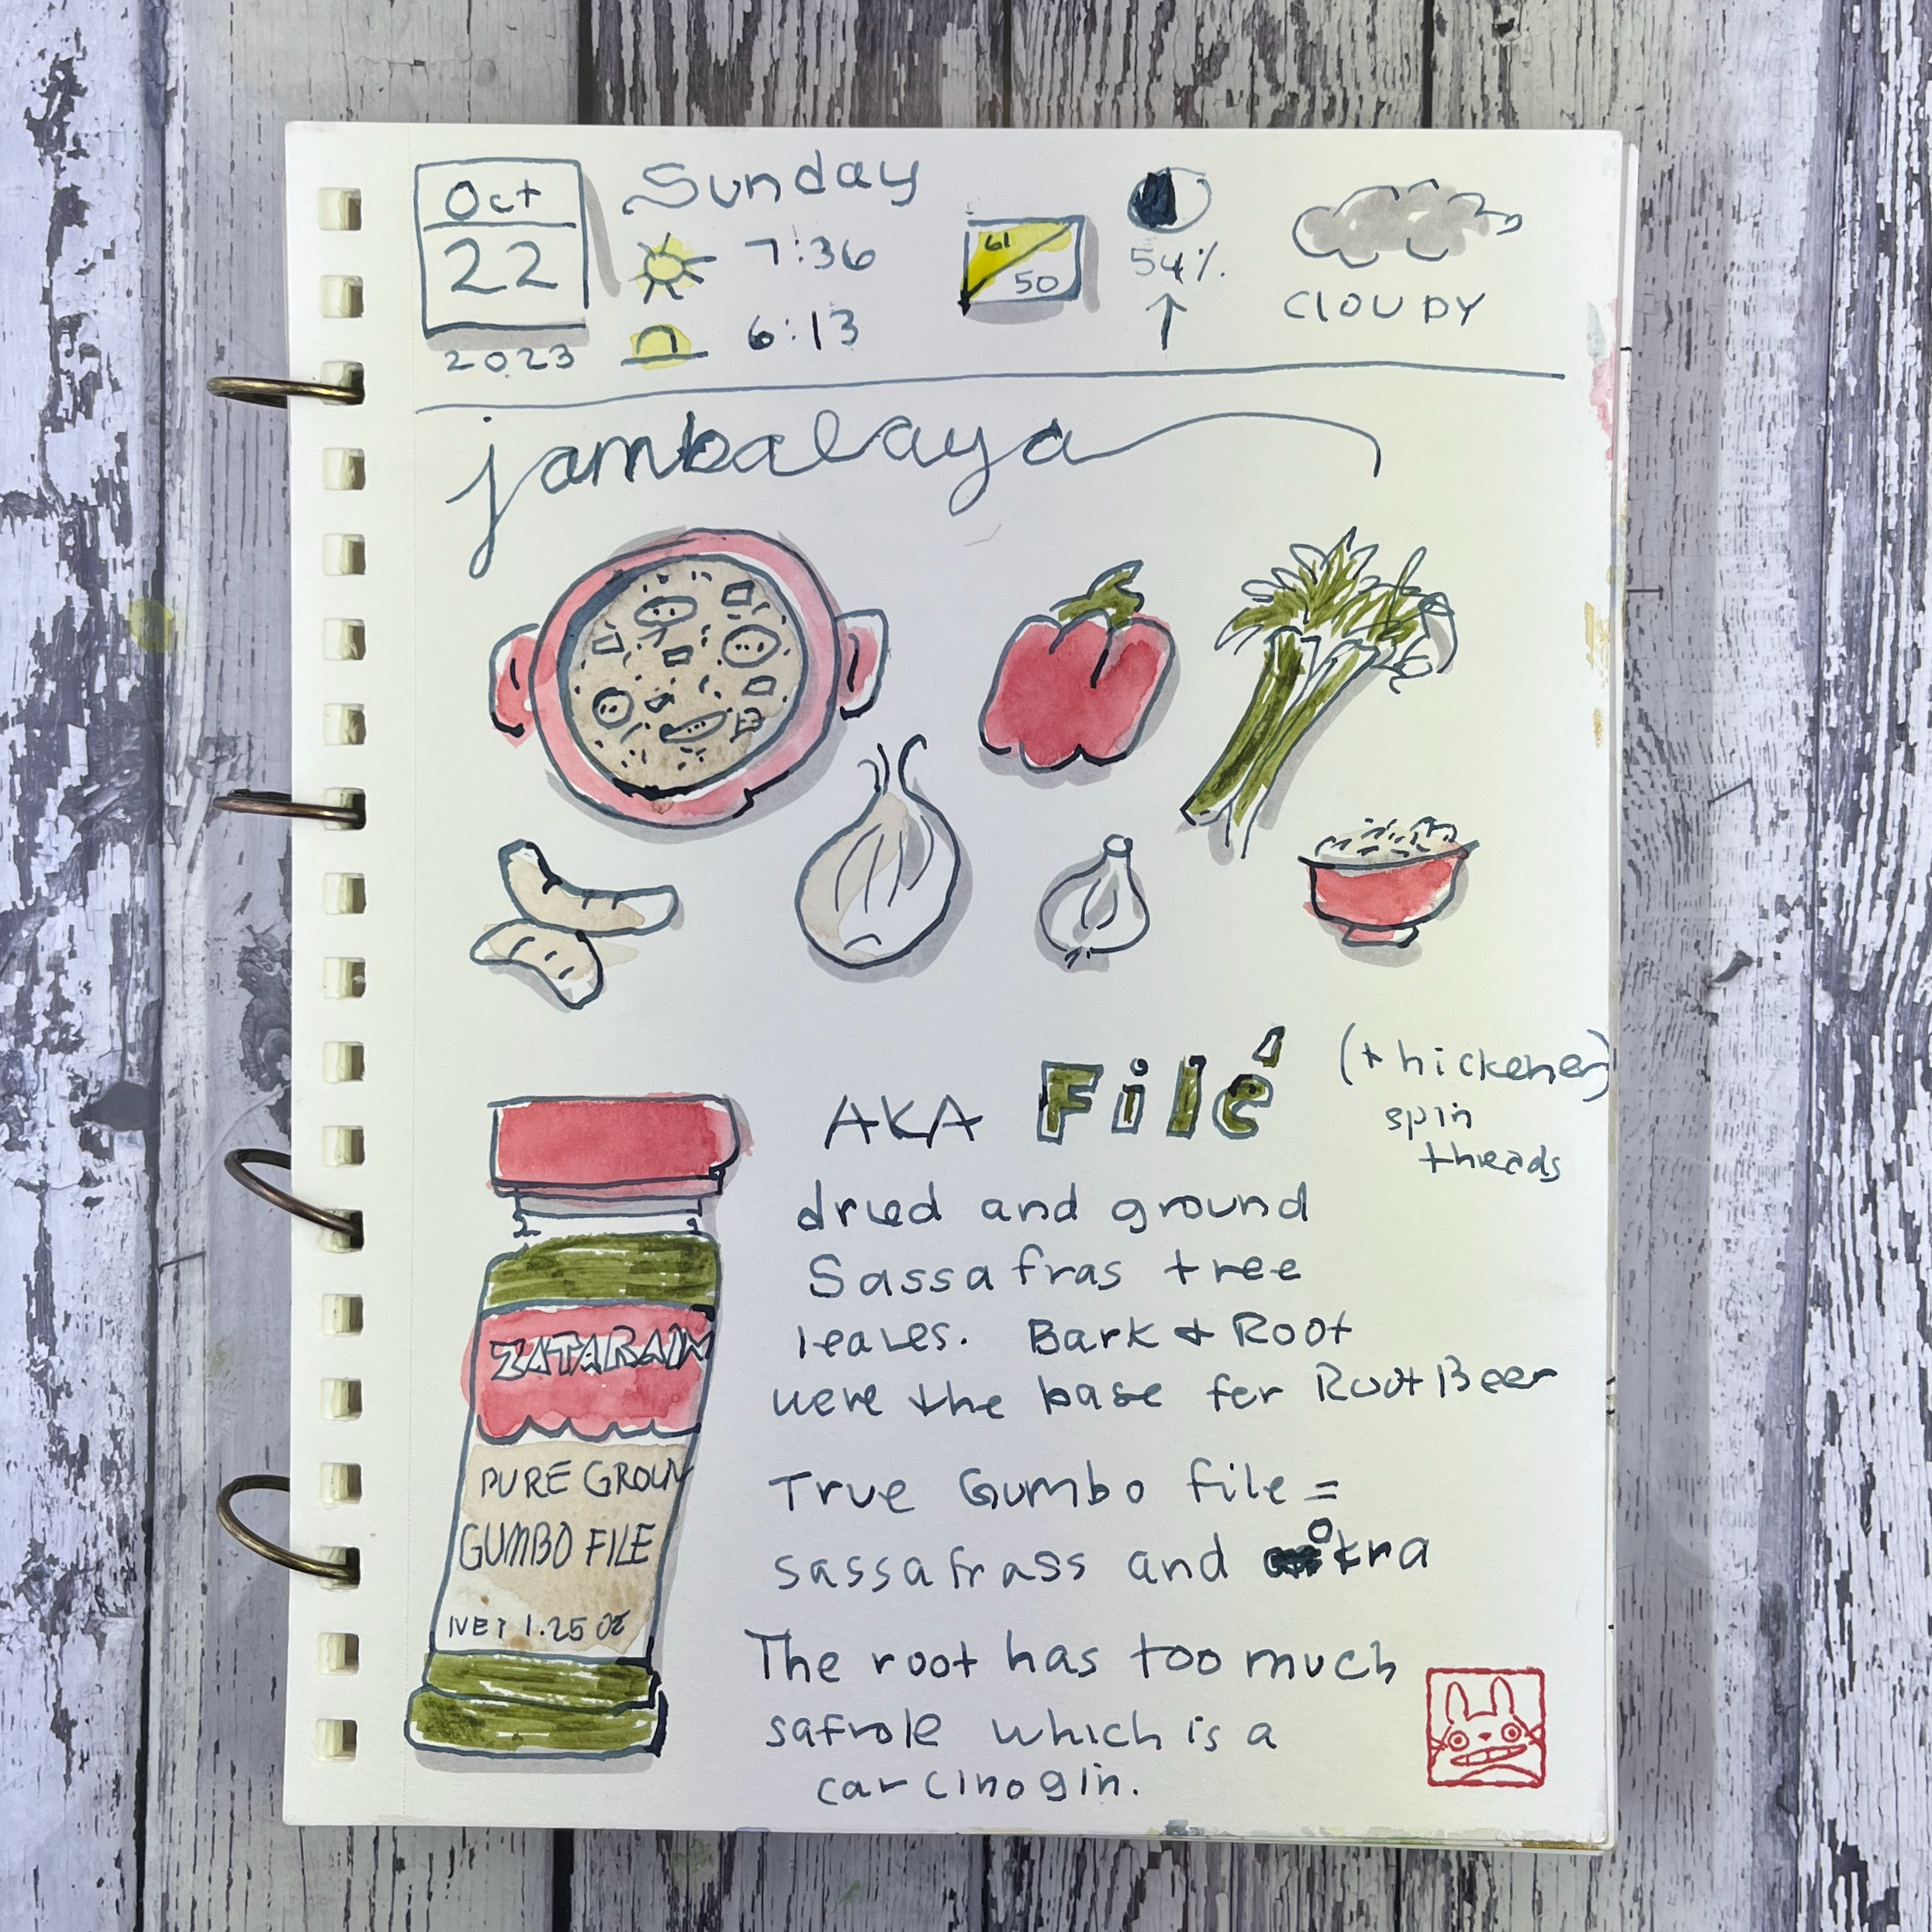 Oct
22
2023
Sunday
7:36
6:13
61
50
54%
↑
CLOUDY
jambalaya
AKA Filé (thickener)
spin
threads
dried and ground
Sassafras tree
leaves. Bark & Root
were the base for Root Beer
True Gumbo file =
sassafrass and okra
The root has too much
safrole which is a
carcinogin.
ZATARAIN
PURE GROUN
GUMBO FILE
NET 1.25 OZ